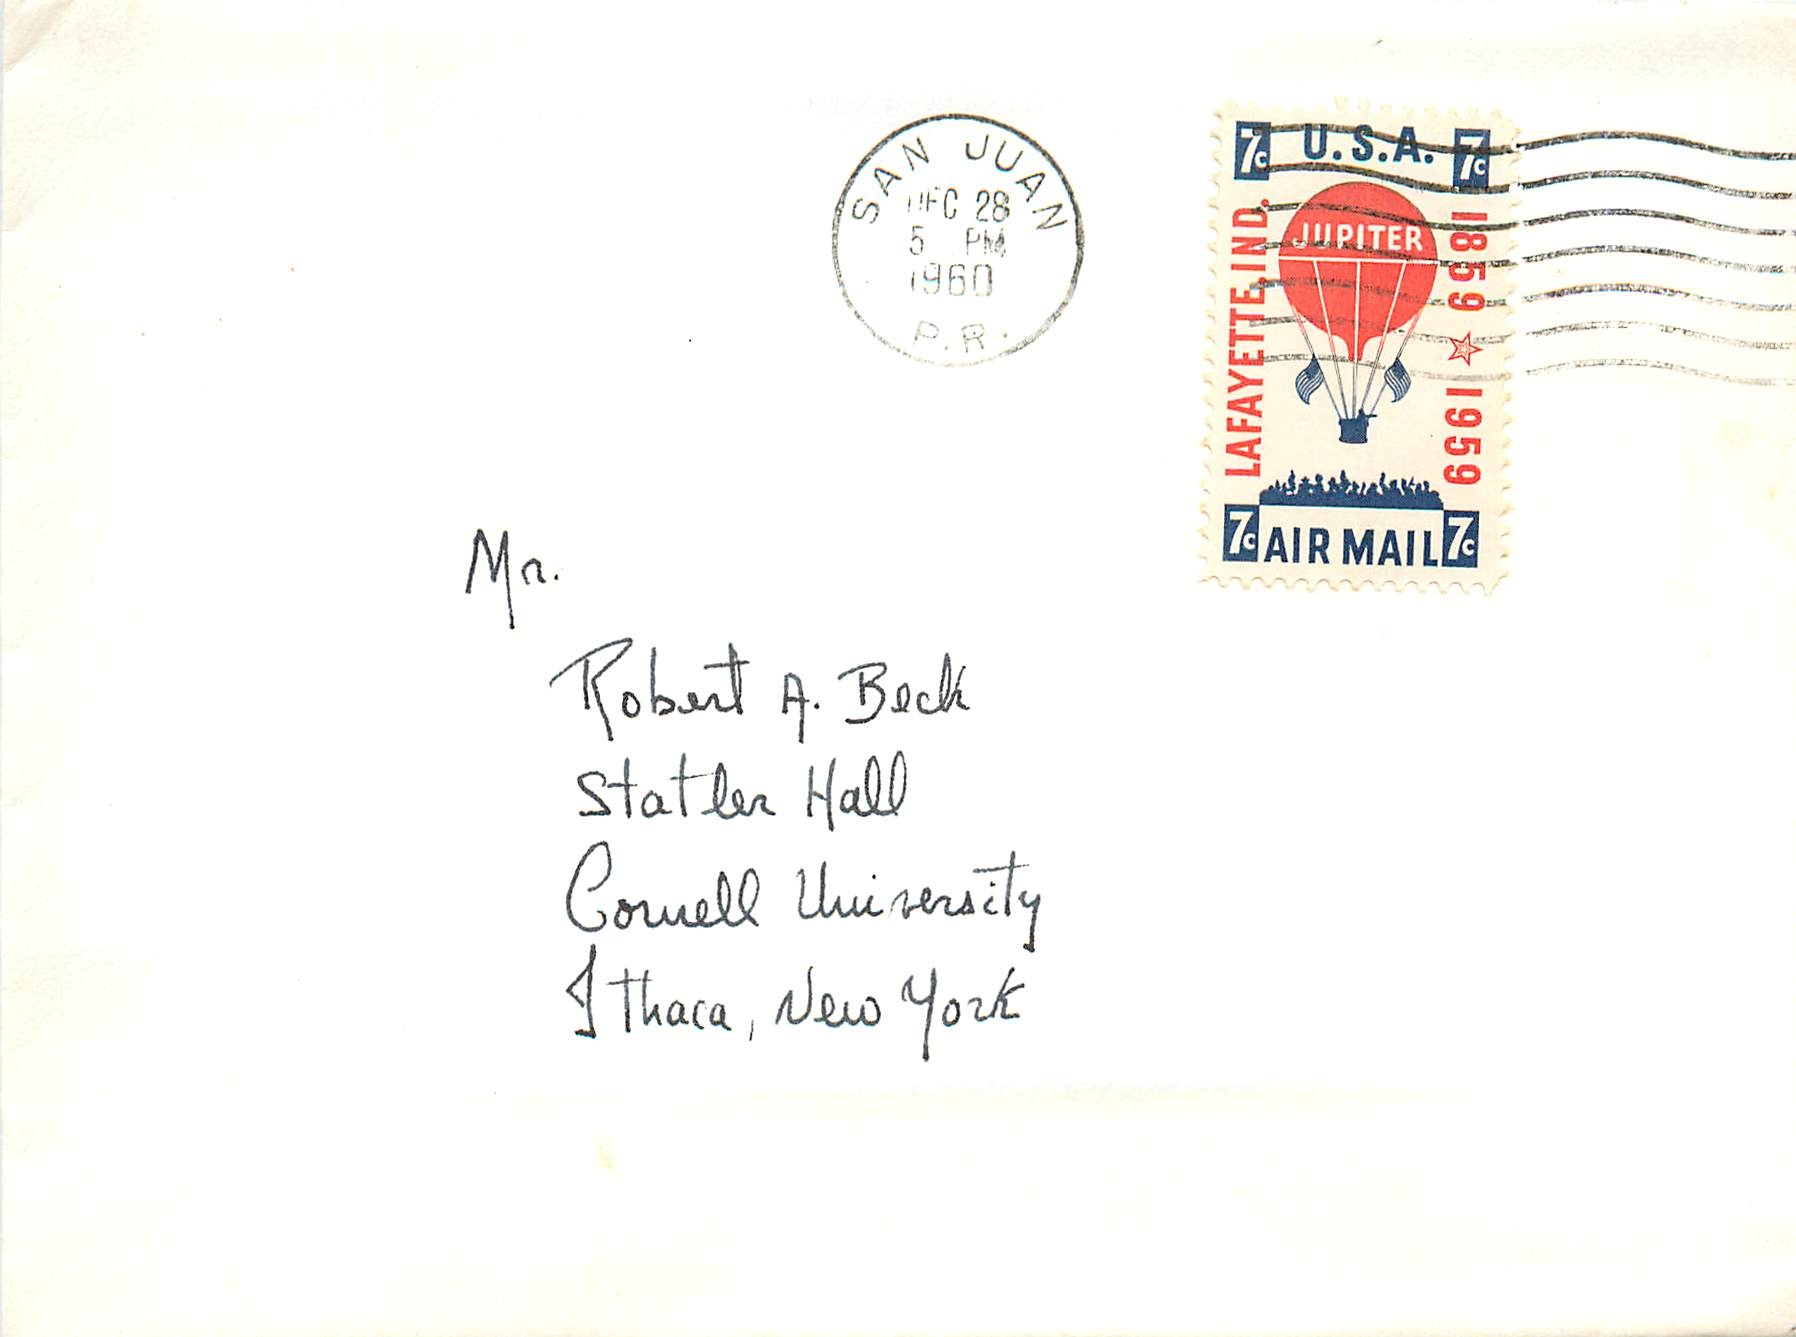 SAN JUAN
DEC 28
5 PM
1960
P.R.
7c U.S.A. 7c
LAFAYETTE, IND.
JUPITER
1859 ☆ 1959
7c AIR MAIL 7c
Mr.
Robert A. Beck
Statler Hall
Cornell University
Ithaca, New York